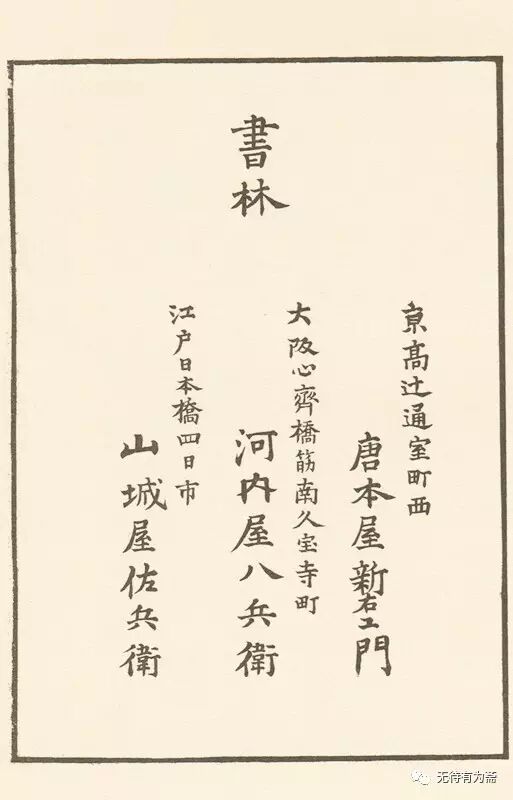 書林
京高辻通室町西
唐本屋新右エ門
大阪心齊橋筋南久宝寺町
河内屋八兵衛
江户日本橋四日市
山城屋佐兵衛
无待有为斋